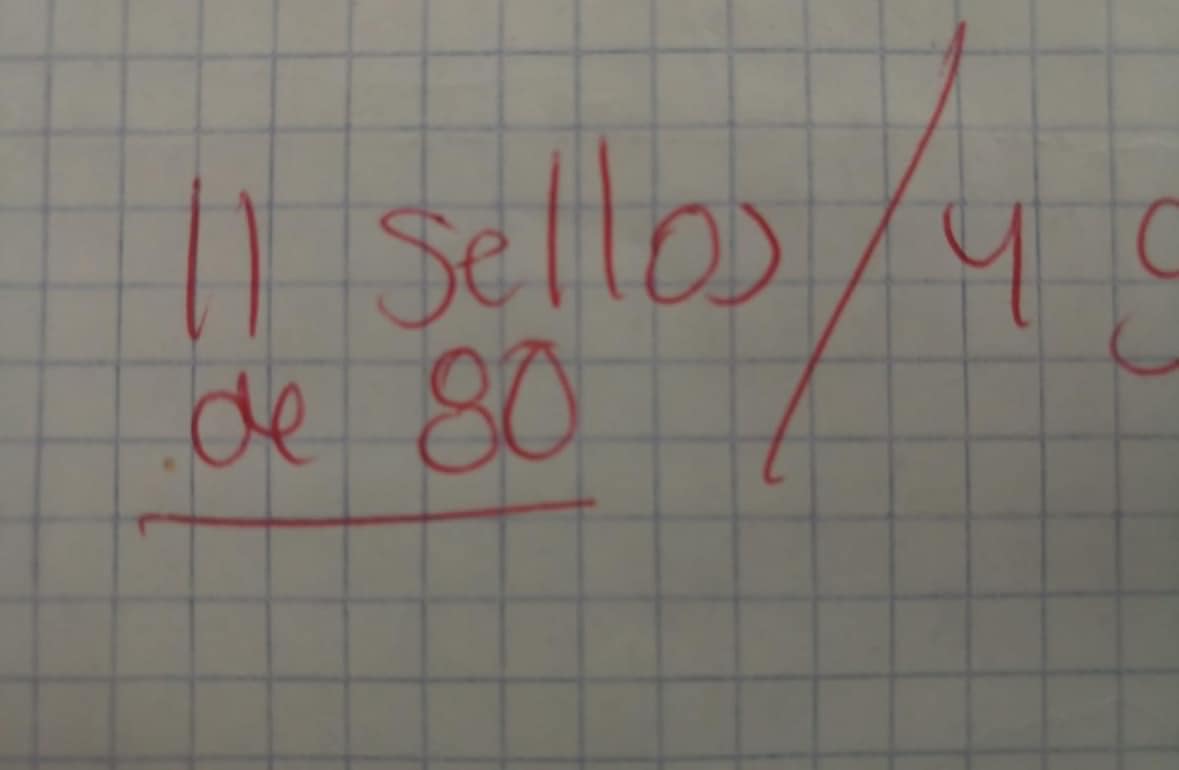 11 sellos / 4
de 80